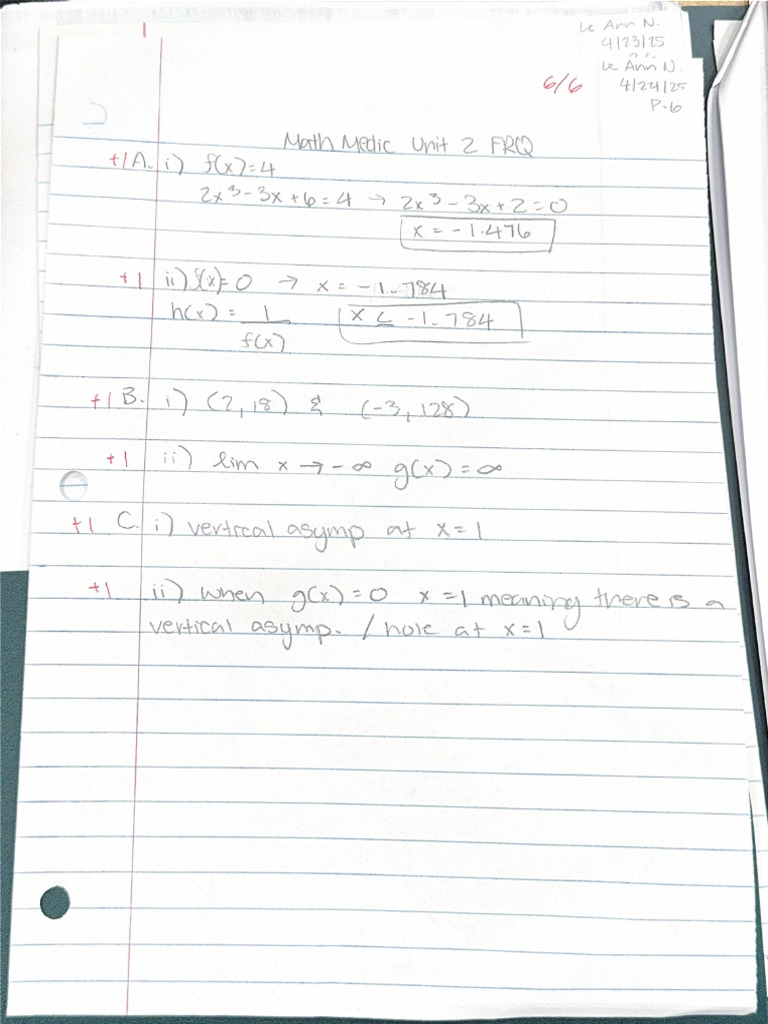 Le Ann N.
4/23/25
Le Ann N.
6/6 4/24/25
P.6
Math Medic Unit 2 FRQ
+1 A. i) f(x)=4
2x³-3x+6=4 → 2x³-3x+2=0
x = -1.476
+1 ii) f(x)=0 → x = -1.784
h(x) = 1/f(x) x ≤ -1.784
+1 B. i) (2,18) & (-3,128)
+1 ii) lim x→-∞ g(x)=∞
+1 C. i) vertical asymp at x=1
+1 ii) when g(x)=0 x=1 meaning there is a
vertical asymp. / hole at x=1